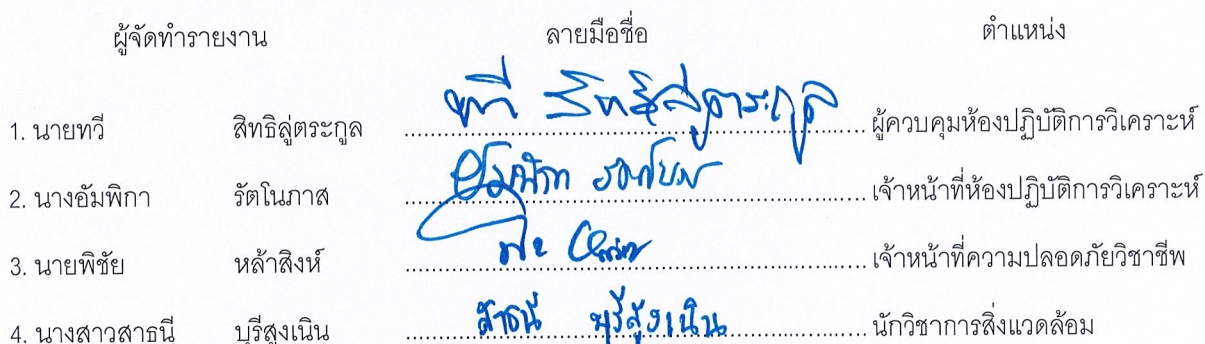 ผู้จัดทำรายงาน ลายมือชื่อ ตำแหน่ง
1. นายทวี สิทธิลู่ตระกูล ทวี สิทธิลู่ตระกูล ผู้ควบคุมห้องปฏิบัติการวิเคราะห์
2. นางอัมพิกา รัตโนภาส เจ้าหน้าที่ห้องปฏิบัติการวิเคราะห์
3. นายพิชัย หล้าสิงห์ เจ้าหน้าที่ความปลอดภัยวิชาชีพ
4. นางสาวสาธนี บุรีสูงเนิน สาธนี บุรีสูงเนิน นักวิชาการสิ่งแวดล้อม